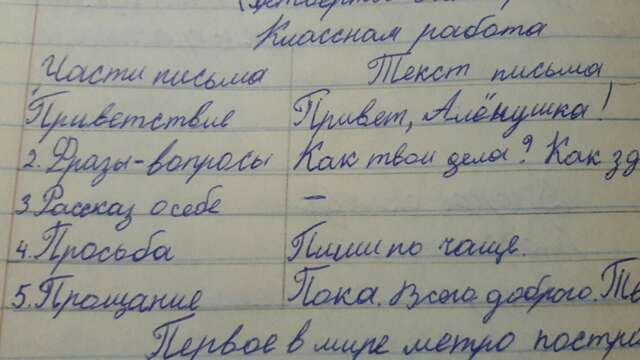 Классная работа
Части письма Текст письма
Приветствие Привет, Алёнушка!
2. Фразы-вопросы Как твои дела? Как зд
3. Рассказ о себе –
4. Просьба Пиши по чаще.
5. Прощание Пока. Всего доброго. Тв
Первое в мире метро постро